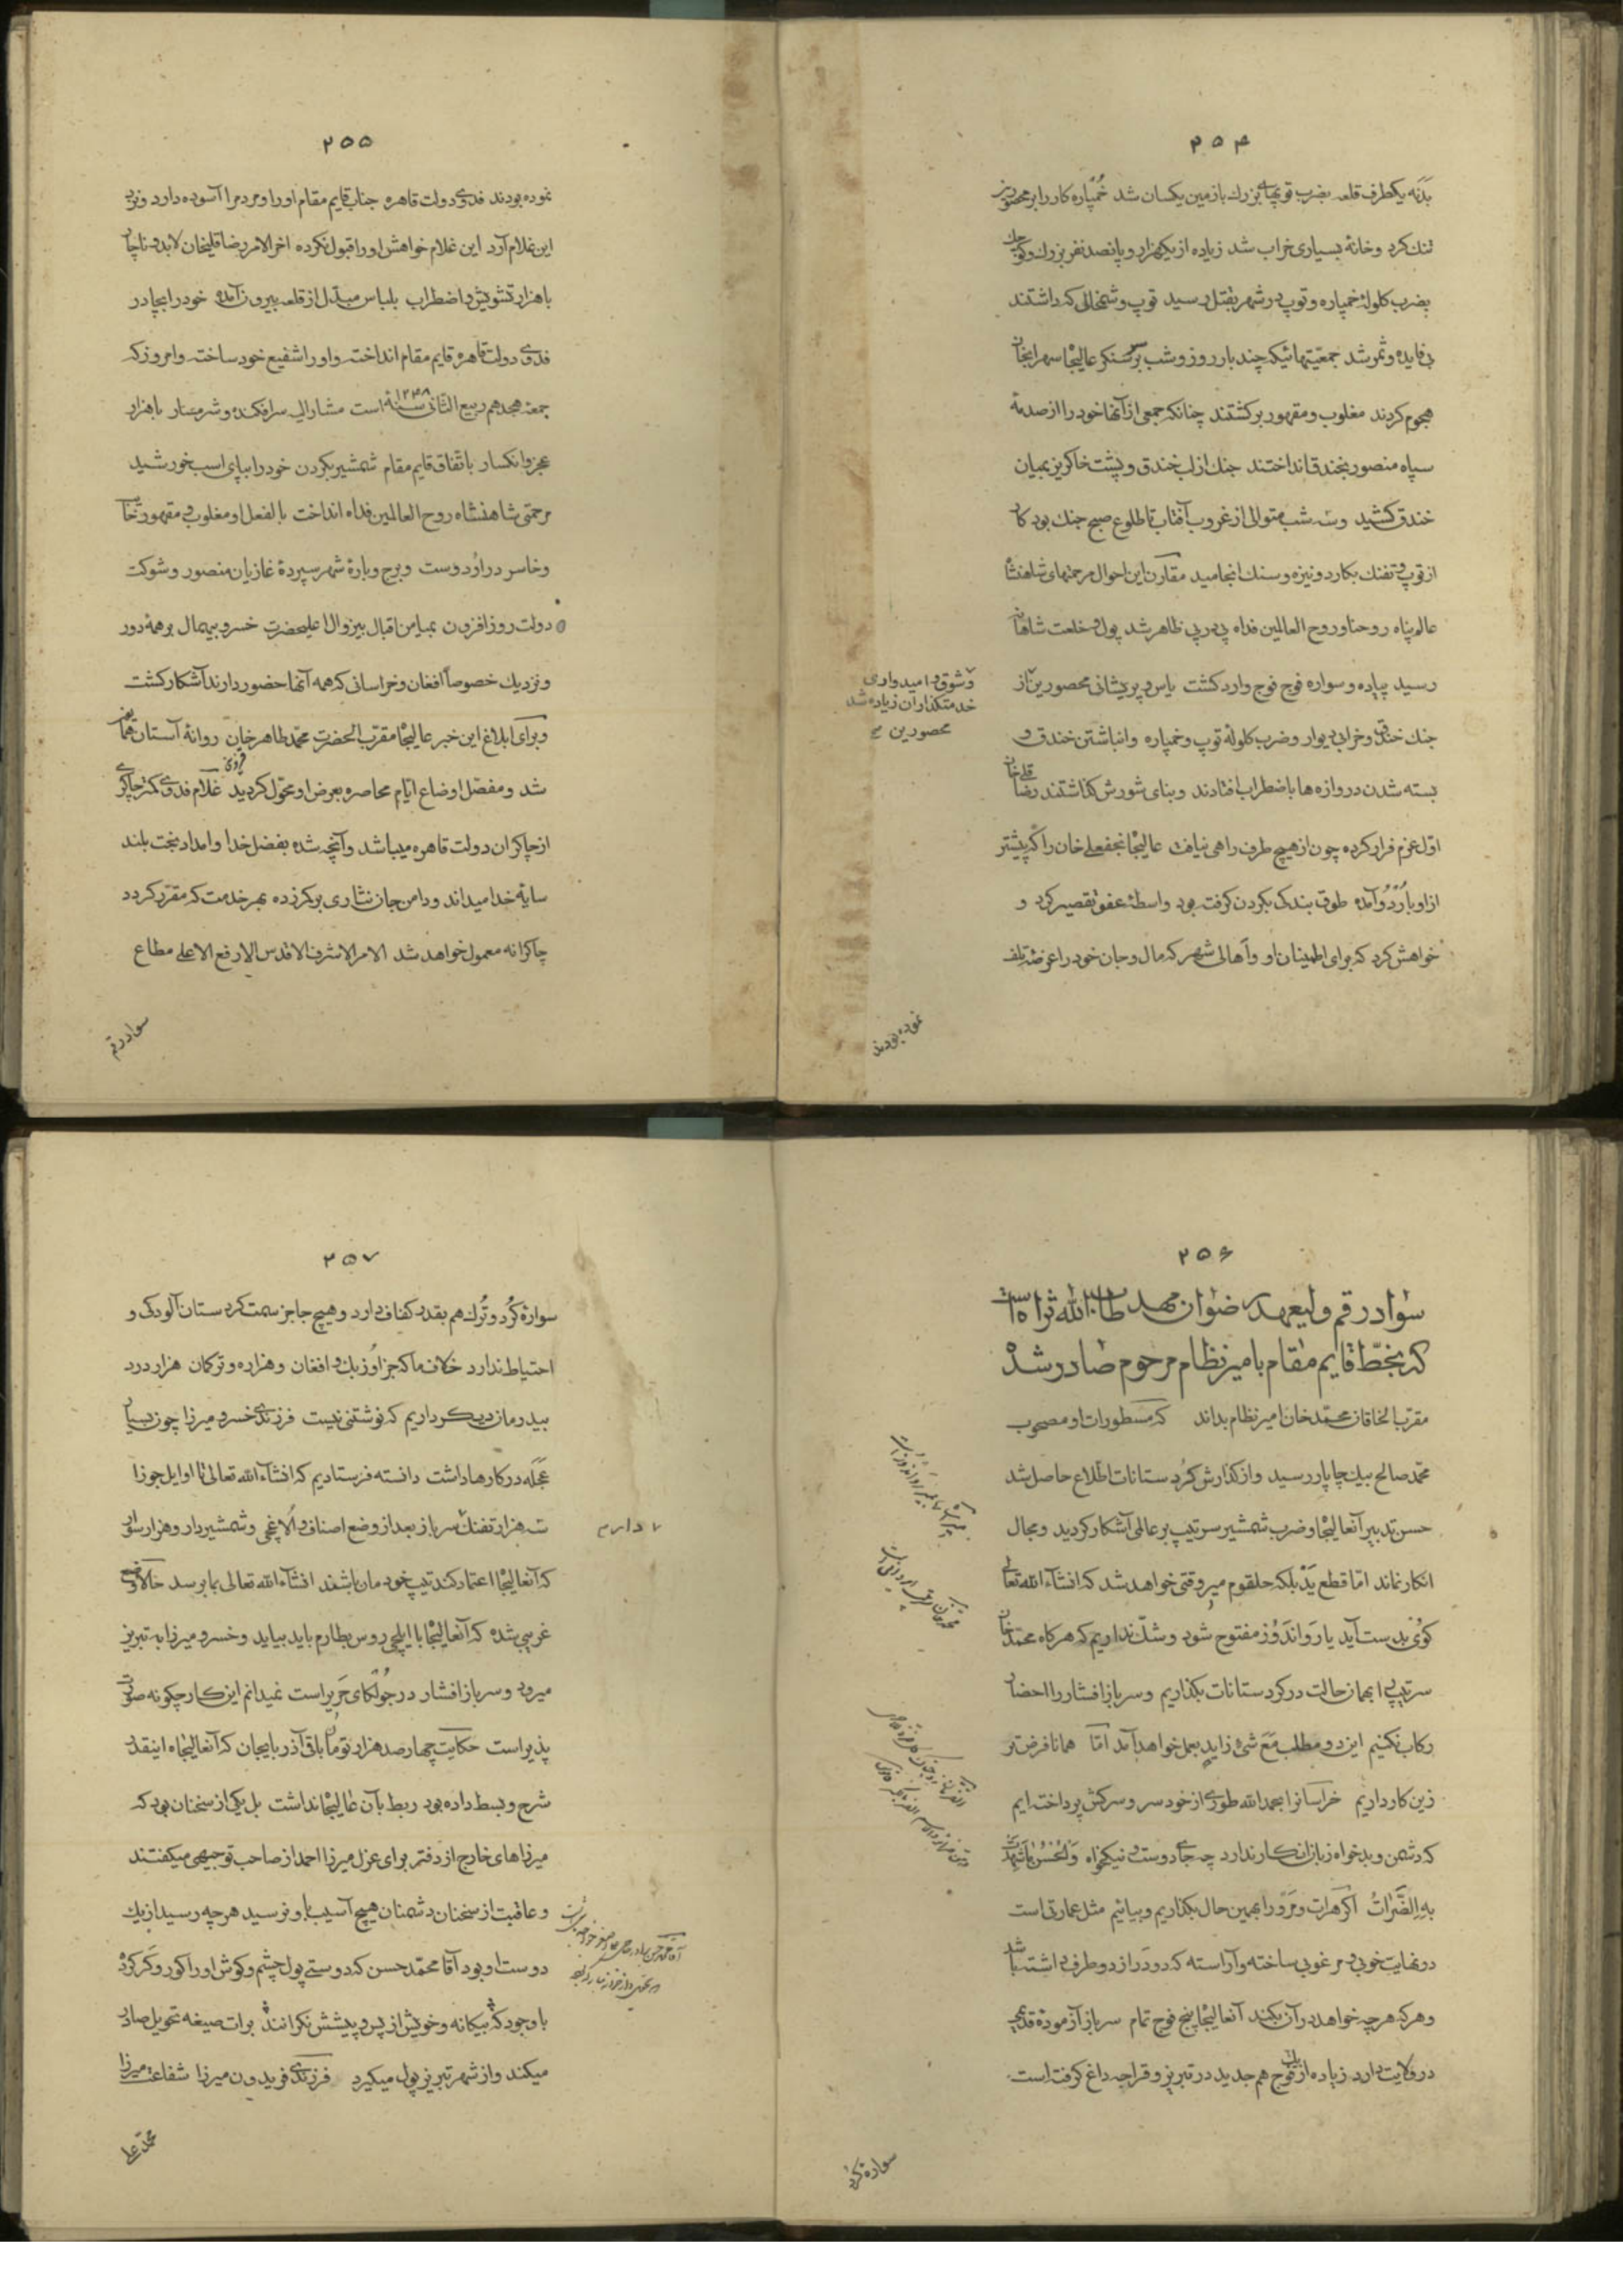 ۲۵۴
بدنه یکطرف قلعه بضرب توپهای بزرك بازمین یکسان شد خُمپاره کار را بر محصورین
تنك کرد و خانهٔ بسیاری خراب شد زیاده از یکهزار و پانصد نفر بزرك و کوچك
بضرب کلولهٔ خمپاره و توپ در شهر بقتل رسید توپ و شمخالی که داشتند
بی فایده و ثمر شد جمعیتهائیکه چند بار روز و شب بر سنکر عالیجاه سهرابخان
هجوم کردند مغلوب و مقهور برکشتند چنانکه جمعی از آنها خود را از صدمهٔ
سپاه منصور بخندق انداختند جنك از لب خندق و پشت خاکریز بمیان
خندق کشید و سه شب متوالی از غروب آفتاب تا طلوع صبح جنك بود کار
از توپ و تفنك بکارد و نیزه و سنك انجامید مقارن این احوال مرحمتهای شاهنشاه
عالم پناه روحنا و روح العالمین فداه پی در پی ظاهر شد پول و خلعت شاهانه
رسید پیاده و سواره فوج فوج وارد کشت یاس و پریشانی محصورین از
و شوق و امیدواری
خدمتکذاران زیاده شد
محصورین
جنك خندق و خرابی دیوار و ضرب کلولهٔ توپ و خمپاره و انباشتن خندق و
بسته شدن دروازه ها باضطراب افتادند و بنای شورش کذاشتند رضا قلی خان
اوّل عزم فرار کرده چون از هیچ طرف راهی نیافت عالیجاه نجفعلی خان را که پیشتر
از او باُردو آمده طوق بندکی بکردن کرفته بود واسطهٔ عفو تقصیر کرد و
خواهش کرد که برای اطمینان او و اهالی شهر که مال و جان خود را عرضهٔ تلف
نموده بودند
۲۵۵
نموده بودند فدوی دولت قاهره جناب قایم مقام او را و مردم را آسوده دارد و نزد
این غلام آرد این غلام خواهش او را قبول نکرده اخر الامر رضا قلیخان لابد و ناچار
با هزار تشویش و اضطراب بلباس مبدّل از قلعه بیرون آمده خود را بچادر
فدوی دولت قاهره قایم مقام انداخت و او را شفیع خود ساخت و امروز که
جمعه هجدهم ربیع الثّانی سنهٔ ۱۲۴۸ است مشارالیه سرافکنده و شرمسار با هزار
عجز و انکسار باتّفاق قایم مقام شمشیر بکردن خود را بپای اسب خورشید
مرحمتی شاهنشاه روح العالمین فداه انداخت بالفعل او مغلوب و مقهور
و خاسر در اُردوست و برج و بارهٔ شهر سپردهٔ غازیان منصور و شوکت
دولت روز افزون بمیامن اقبال بیزوال اعلیحضرت خسرو بیهمال بر همهٔ دور
و نزدیك خصوصاً افغان و خراسانی که همه آنها حضور دارند آشکار کشت
و برای ابلاغ این خبر عالیجاه مقرّب الحضرت محمّد طاهر خان روانهٔ آستان همایون
شد و مفصّل اوضاع ایّام محاصره بعرض او محوّل کردید غلام فدوی کمتر چاکری
از چاکران دولت قاهره میباشد و آنچه شده بفضل خدا و امداد بخت بلند
سایهٔ خدا میداند و دامن جان نثاری بر کمر زده بهر خدمت که مقرّر کردد
چاکرانه معمول خواهد شد الامر الاشرف الاقدس الارفع الاعلی مطاع
سواد رقم
۲۵۶
سواد رقم ولیعهد رضوان مهد طاب الله ثراه است
که بخطّ قایم مقام بامیر نظام مرحوم صادر شده
مقرّب الخاقان محمّد خان امیر نظام بداند که مسطورات او مصحوب
محمّد صالح بیك چاپار رسید و از کذارش کُردستانات اطّلاع حاصل شد
حسن تدبیر آنعالیجاه و ضرب شمشیر سرتیپ بر عالمی آشکار کردید و مجال
انکار نماند امّا قطع یَد بلکه حلقوم میر وقتی خواهد شد که انشآءالله تعالی
کوی بدست آید یا رَواندوز مفتوح شود و شك نداریم که هرکاه محمّد خان
سرتیپ را بهمان حالت در کردستانات بکذاریم و سرباز افشار را احضار
رکاب نکنیم این دو مطلب مَعَ شیءٍ زایدٍ بعمل خواهد آمد امّا همانا فرض تر
زین کار داریم خراسانرا بحمدالله طوری از خودسر و سرکش پرداخته ایم
که دشمن و بدخواه زبان انکار ندارد چه جای دوست و نیکخواه وَالحُسنُ ما شَهِدَت
بِهِ الضَّرّاتُ اکر هرات و مَرو را بهمین حال بکذاریم و بیائیم مثل عمارتی است
در نهایت خوبی و مرغوبی ساخته و آراسته که دو در از دو طرف داشته باشد
و هر که هر چه خواهد در آن بکند آنعالیجاه پنج فوج تمام سرباز آزمودهٔ قدیمی
در ولایت دارد زیاده از یك فوج هم جدید در تبریز و قراجه داغ کرفته است
سواره کرد
۲۵۷
سوارهٔ کُرد و تُرك هم بقدر کفاف دارد و هیچ جا جز سمت کردستان آلودکی و
احتیاط ندارد خلاف ما که جز اوزبك و افغان و هزاره و ترکمان هزار درد
بیدرمان دیکر داریم که نوشتنی نیست فرزندی خسرو میرزا چون بسیار
عَجَله در کارها داشت دانسته فرستادیم که انشآءالله تعالی تا اوایل جوزا
سه هزار تفنك سرباز بعد از وضع اصناف و اُلاغچی و شمشیردار و هزار سوار
دارم
که آنعالیجاه اعتماد کند تیپ خودمان باشند انشآءالله تعالی بما برسد حالا وضع
غریبی شده که آنعالیجاه با ایلچی روس بطارم باید بیاید و خسرو میرزا به تبریز
میرود و سرباز افشار در جُولکای حَریر است نمیدانم این کار چکونه صورت
پذیر است حکایت چهار صد هزار تومان باقی آذربایجان که آنعالیجاه اینقدر
شرح و بسط داده بود ربط بآن عالیجاه نداشت بل یکی از سخنان بود که
میرزاهای خارج از دفتر برای عزل میرزا احمد از صاحب توجیهی میکفتند
و عاقبت از سخنان دشمنان هیچ آسیب باو نرسید هر چه رسید از یك
دوست او بود آقا محمّد حسن که دوستی پول چشم و کوش او را کور و کر کرده
با وجود که بیکانه و خویش از پس و پیشش نکرانند برات صیغه تحویل صادر
میکند و از شهر تبریز پول میکیرد فرزندی فریدون میرزا شفاعت میرزا
محمّد علی